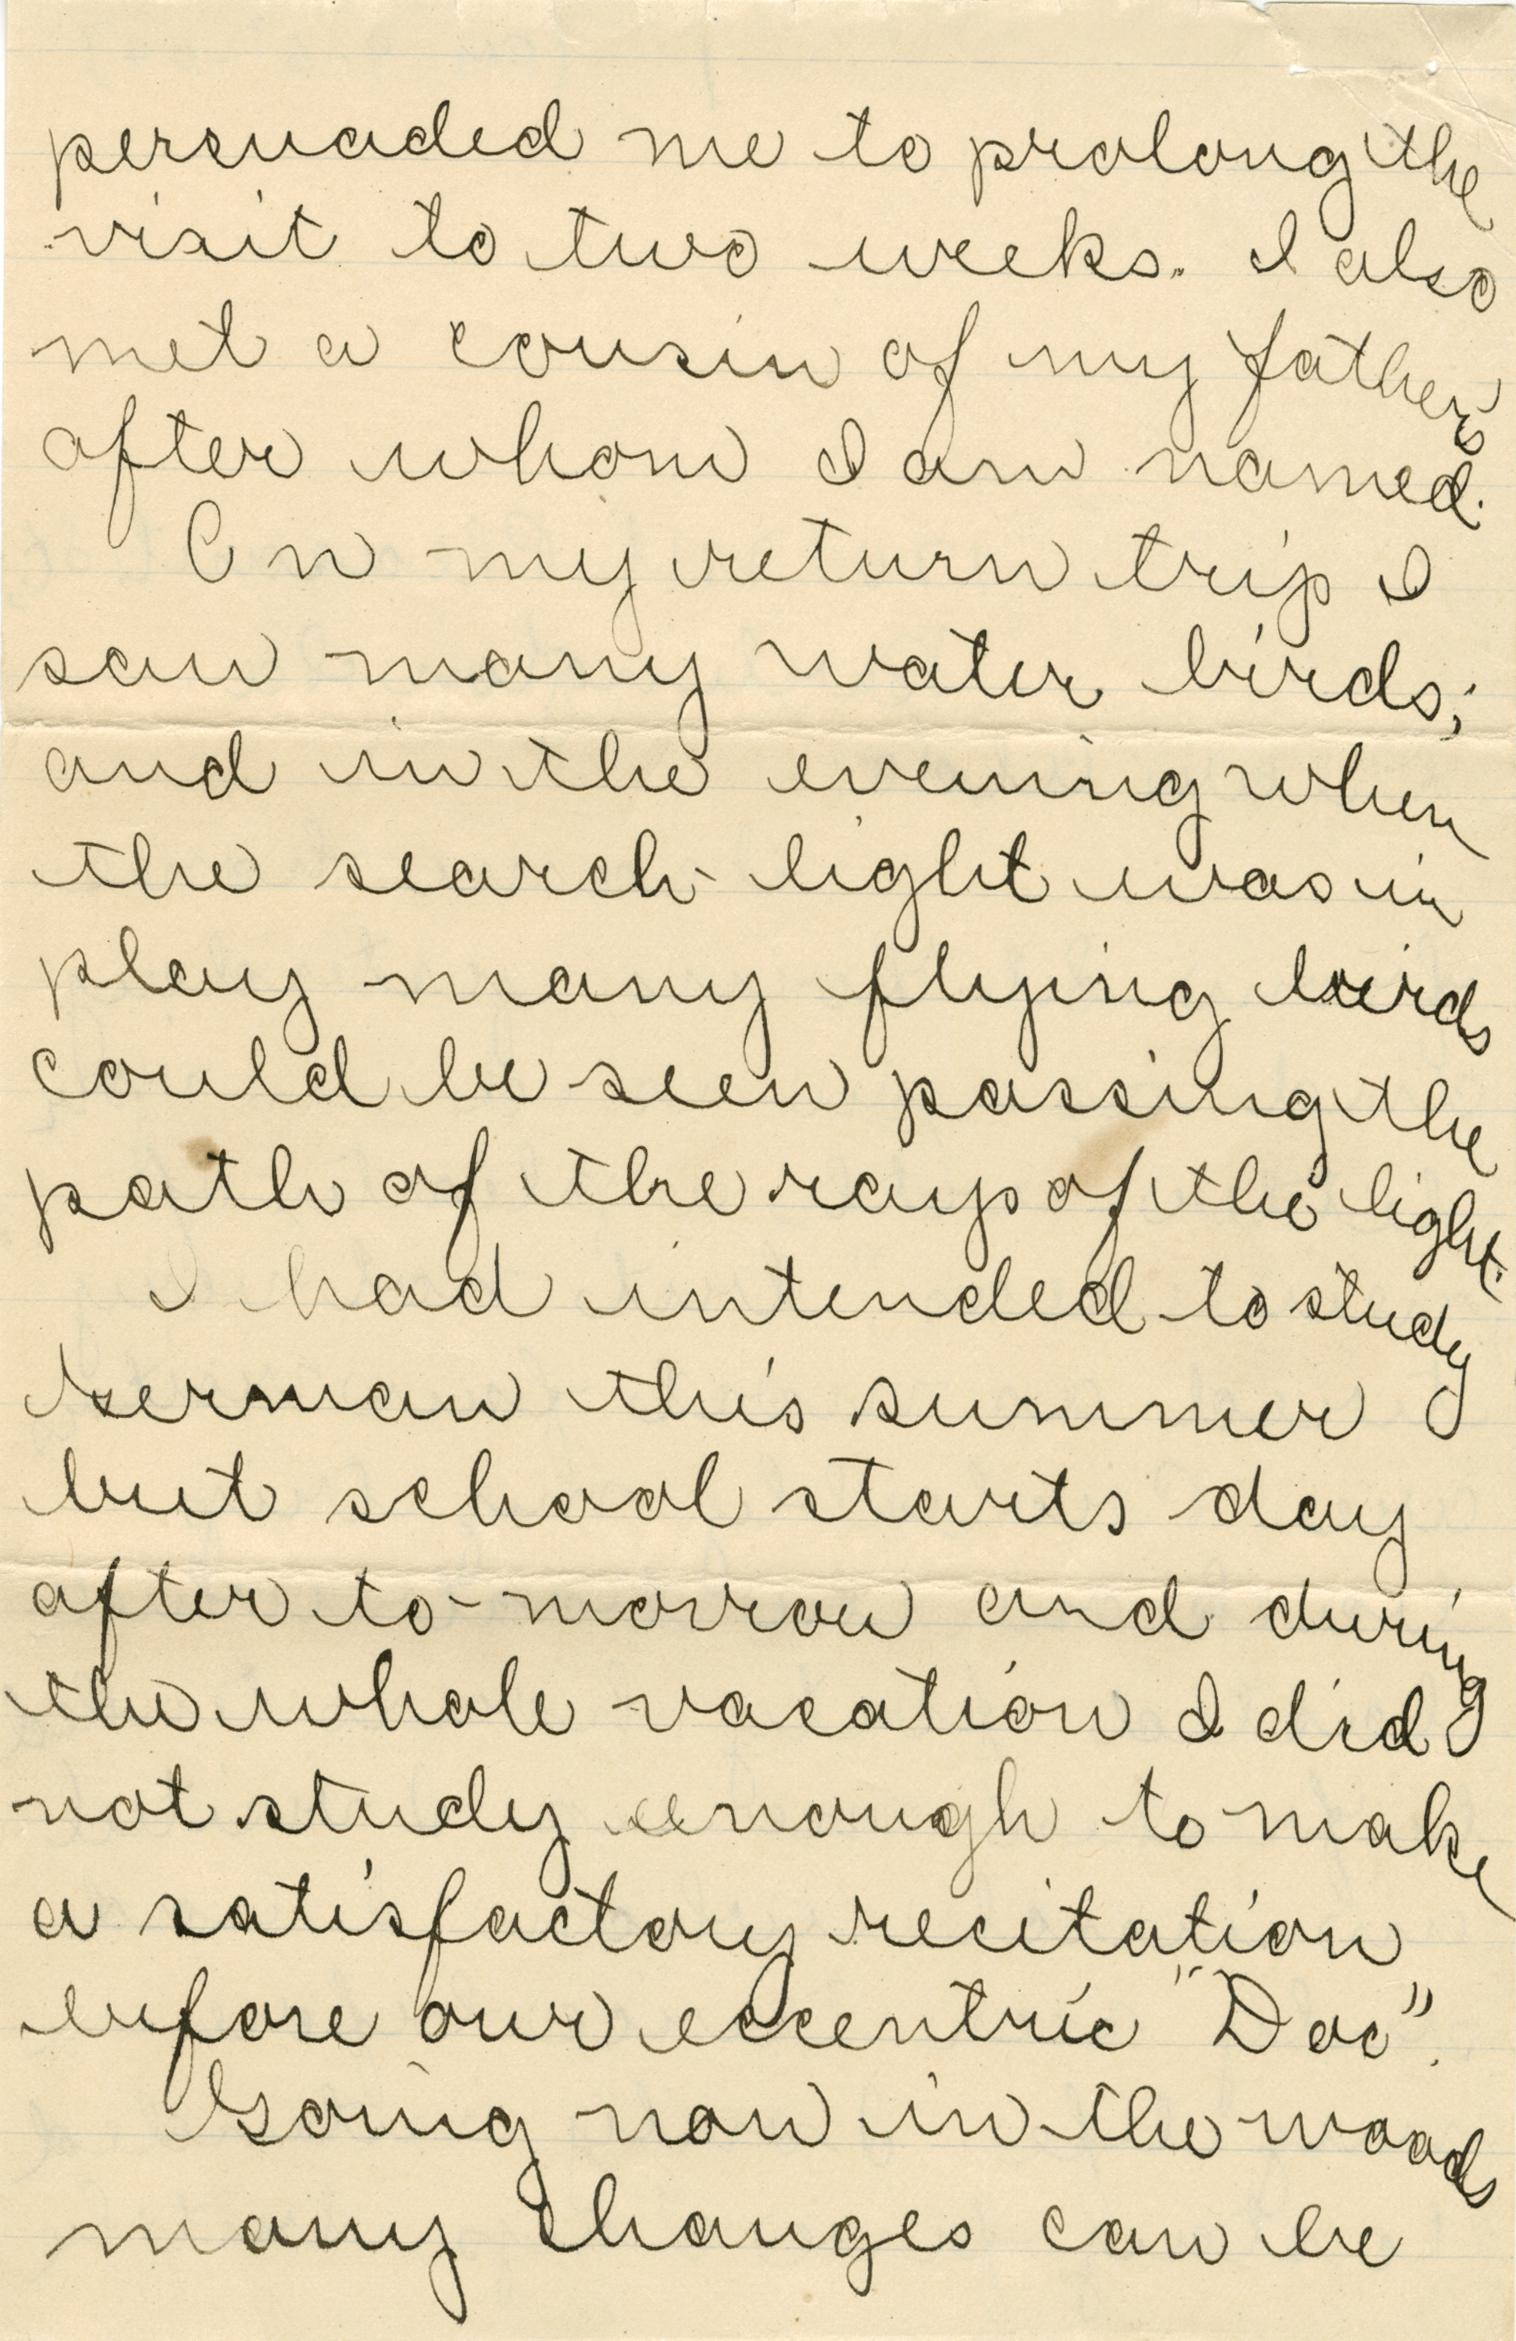 persuaded me to prolong the
visit to two weeks. I also
met a cousin of my father's
after whom I am named.
On my return trip I
saw many water birds;
and in the evening when
the search-light was in
play many flying birds
could be seen passing the
path of the rays of the light.
I had intended to study
German this summer
but school starts day
after to-morrow and during
the whole vacation I did
not study enough to make
a satisfactory recitation
before our eccentric "Doc".
Going now in the woods
many changes can be